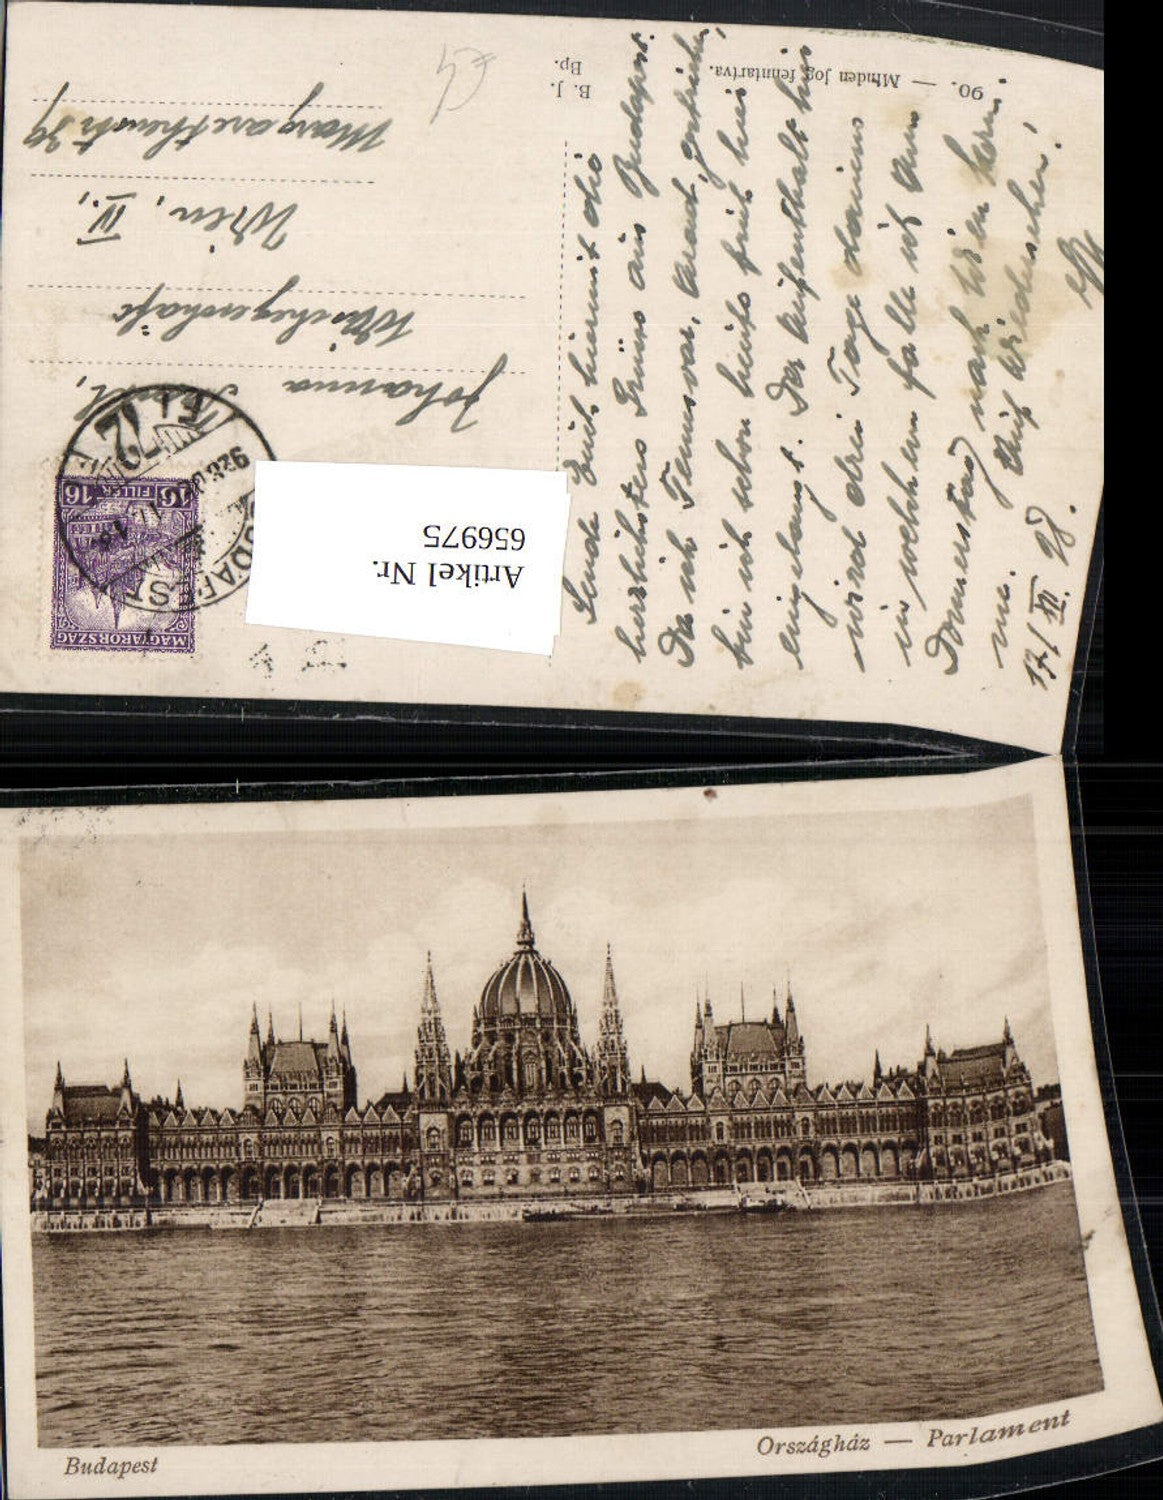 90. — Minden jog fenntartva.
B. J.
Bp.
Sende Euch hiermit die
herzlichsten Grüsse aus Budapest.
Da ich Temesvar, Arad,
bin ich schon heute früh hier
eingelangt. Der Aufenthalt hier
wird drei Tage dauern
in welchem falle ich am
Donnerstag nach Wien komme.
Auf Wiedersehen!
17/VII 28.
Johanna
Wäschegeschäft
Wien, IV.,
Margarethenstr 39
MAGYARORSZÁG
16 FILLÉR 16
BUDAPEST
72
928
Artikel Nr.
656975
Budapest
Országház — Parlament